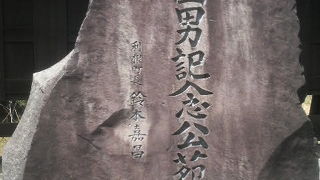 男記念公苑
鈴木嘉昌